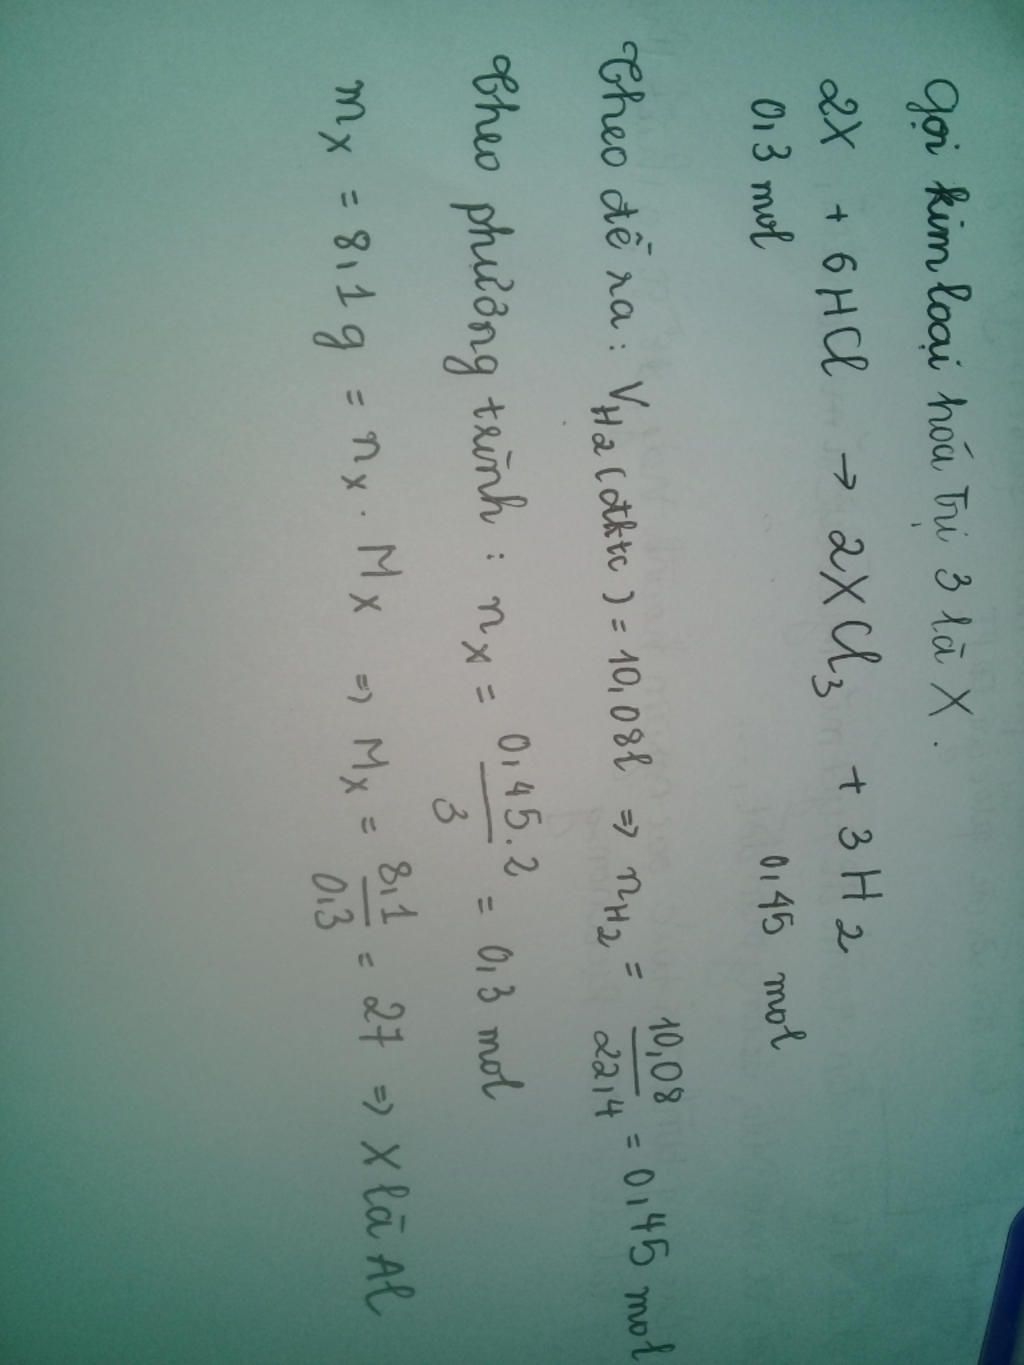 Gọi kim loại hoá trị 3 là X.
2X + 6HCl → 2XCl3 + 3H2
0,3 mol 0,45 mol
Theo đề ra: VH2(đktc) = 10,08l => nH2 = 10,08/22,4 = 0,45 mol
Theo phương trình: nX = 0,45.2/3 = 0,3 mol
mX = 8,1g = nX.MX => MX = 8,1/0,3 = 27 => X là Al